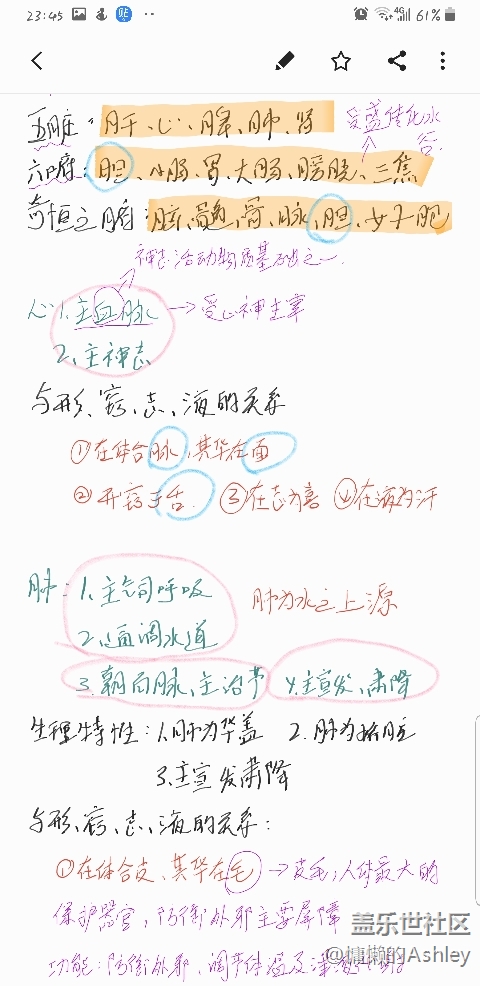 23:45
4G
61%
五脏：肝、心、脾、肺、肾
受盛传化水谷
六腑：胆、小肠、胃、大肠、膀胱、三焦
奇恒之腑：脑、髓、骨、脉、胆、女子胞
神志活动物质基础之一
心：1.主血脉 → 受心神主宰
2、主神志
与形、窍、志、液的关系
①在体合脉，其华在面
②开窍于舌 ③在志为喜 ④在液为汗
肺：1、主气司呼吸
肺为水之上源
2、通调水道
3.朝百脉、主治节 4.主宣发、肃降
生理特性：1.肺为华盖 2.肺为娇脏
3.主宣发肃降
与形、窍、志、液的关系：
①在体合皮、其华在毛 → 皮毛：人体最大的
保护器官，防御外邪主要屏障
功能：防御外邪、调节体温及
盖乐世社区
@慵懒的Ashley